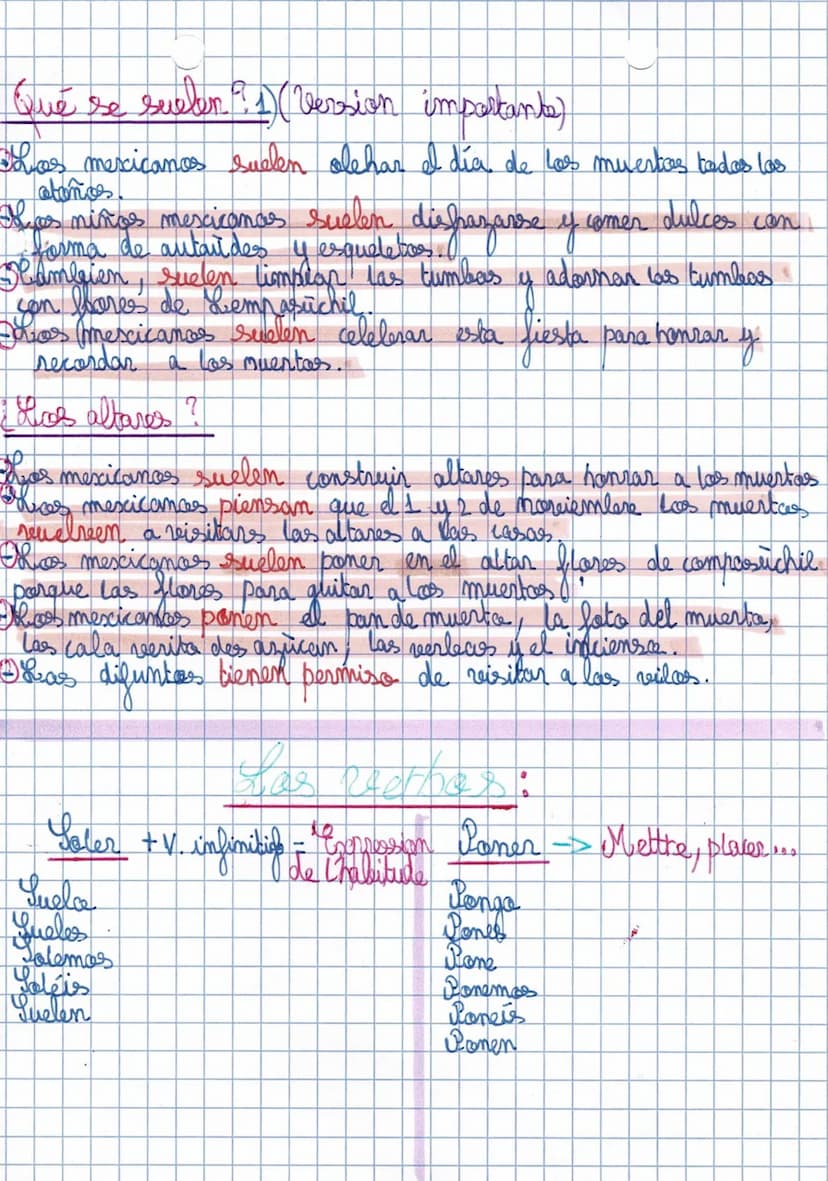 Qué se suelen? 1) (Version importante)
Los mexicanos suelen el día de los muertos todos los
otoños.
Los niños mexicanos suelen disfrazarse y comer dulces con
forma de autaúdes y esqueletos.
suelen limpiar las tumbas y adornar las tumbas
con flores de
Los mexicanos suelen celebrar esta fiesta para honrar y
recordar a los muertos.
¿Los altares?
Los mexicanos suelen construir altares para honrar a los muertos
Los mexicanos piensan que el 1 y 2 de los muertos
a los altares a las casas.
Los mexicanos suelen poner en el altar flores de
porque las flores para a los muertos
Los mexicanos ponen el pan de muerto, la foto del muerto,
las y el
Los difuntos tienen permiso de visitar a los
Los verbos:
Soler + V. infinitif = Expression
de l'habitude
Suelo
Sueles
Solemos
Soléis
Suelen
Poner -> Mettre, placer...
Pongo
Pones
Pone
Ponemos
Poneis
Ponen